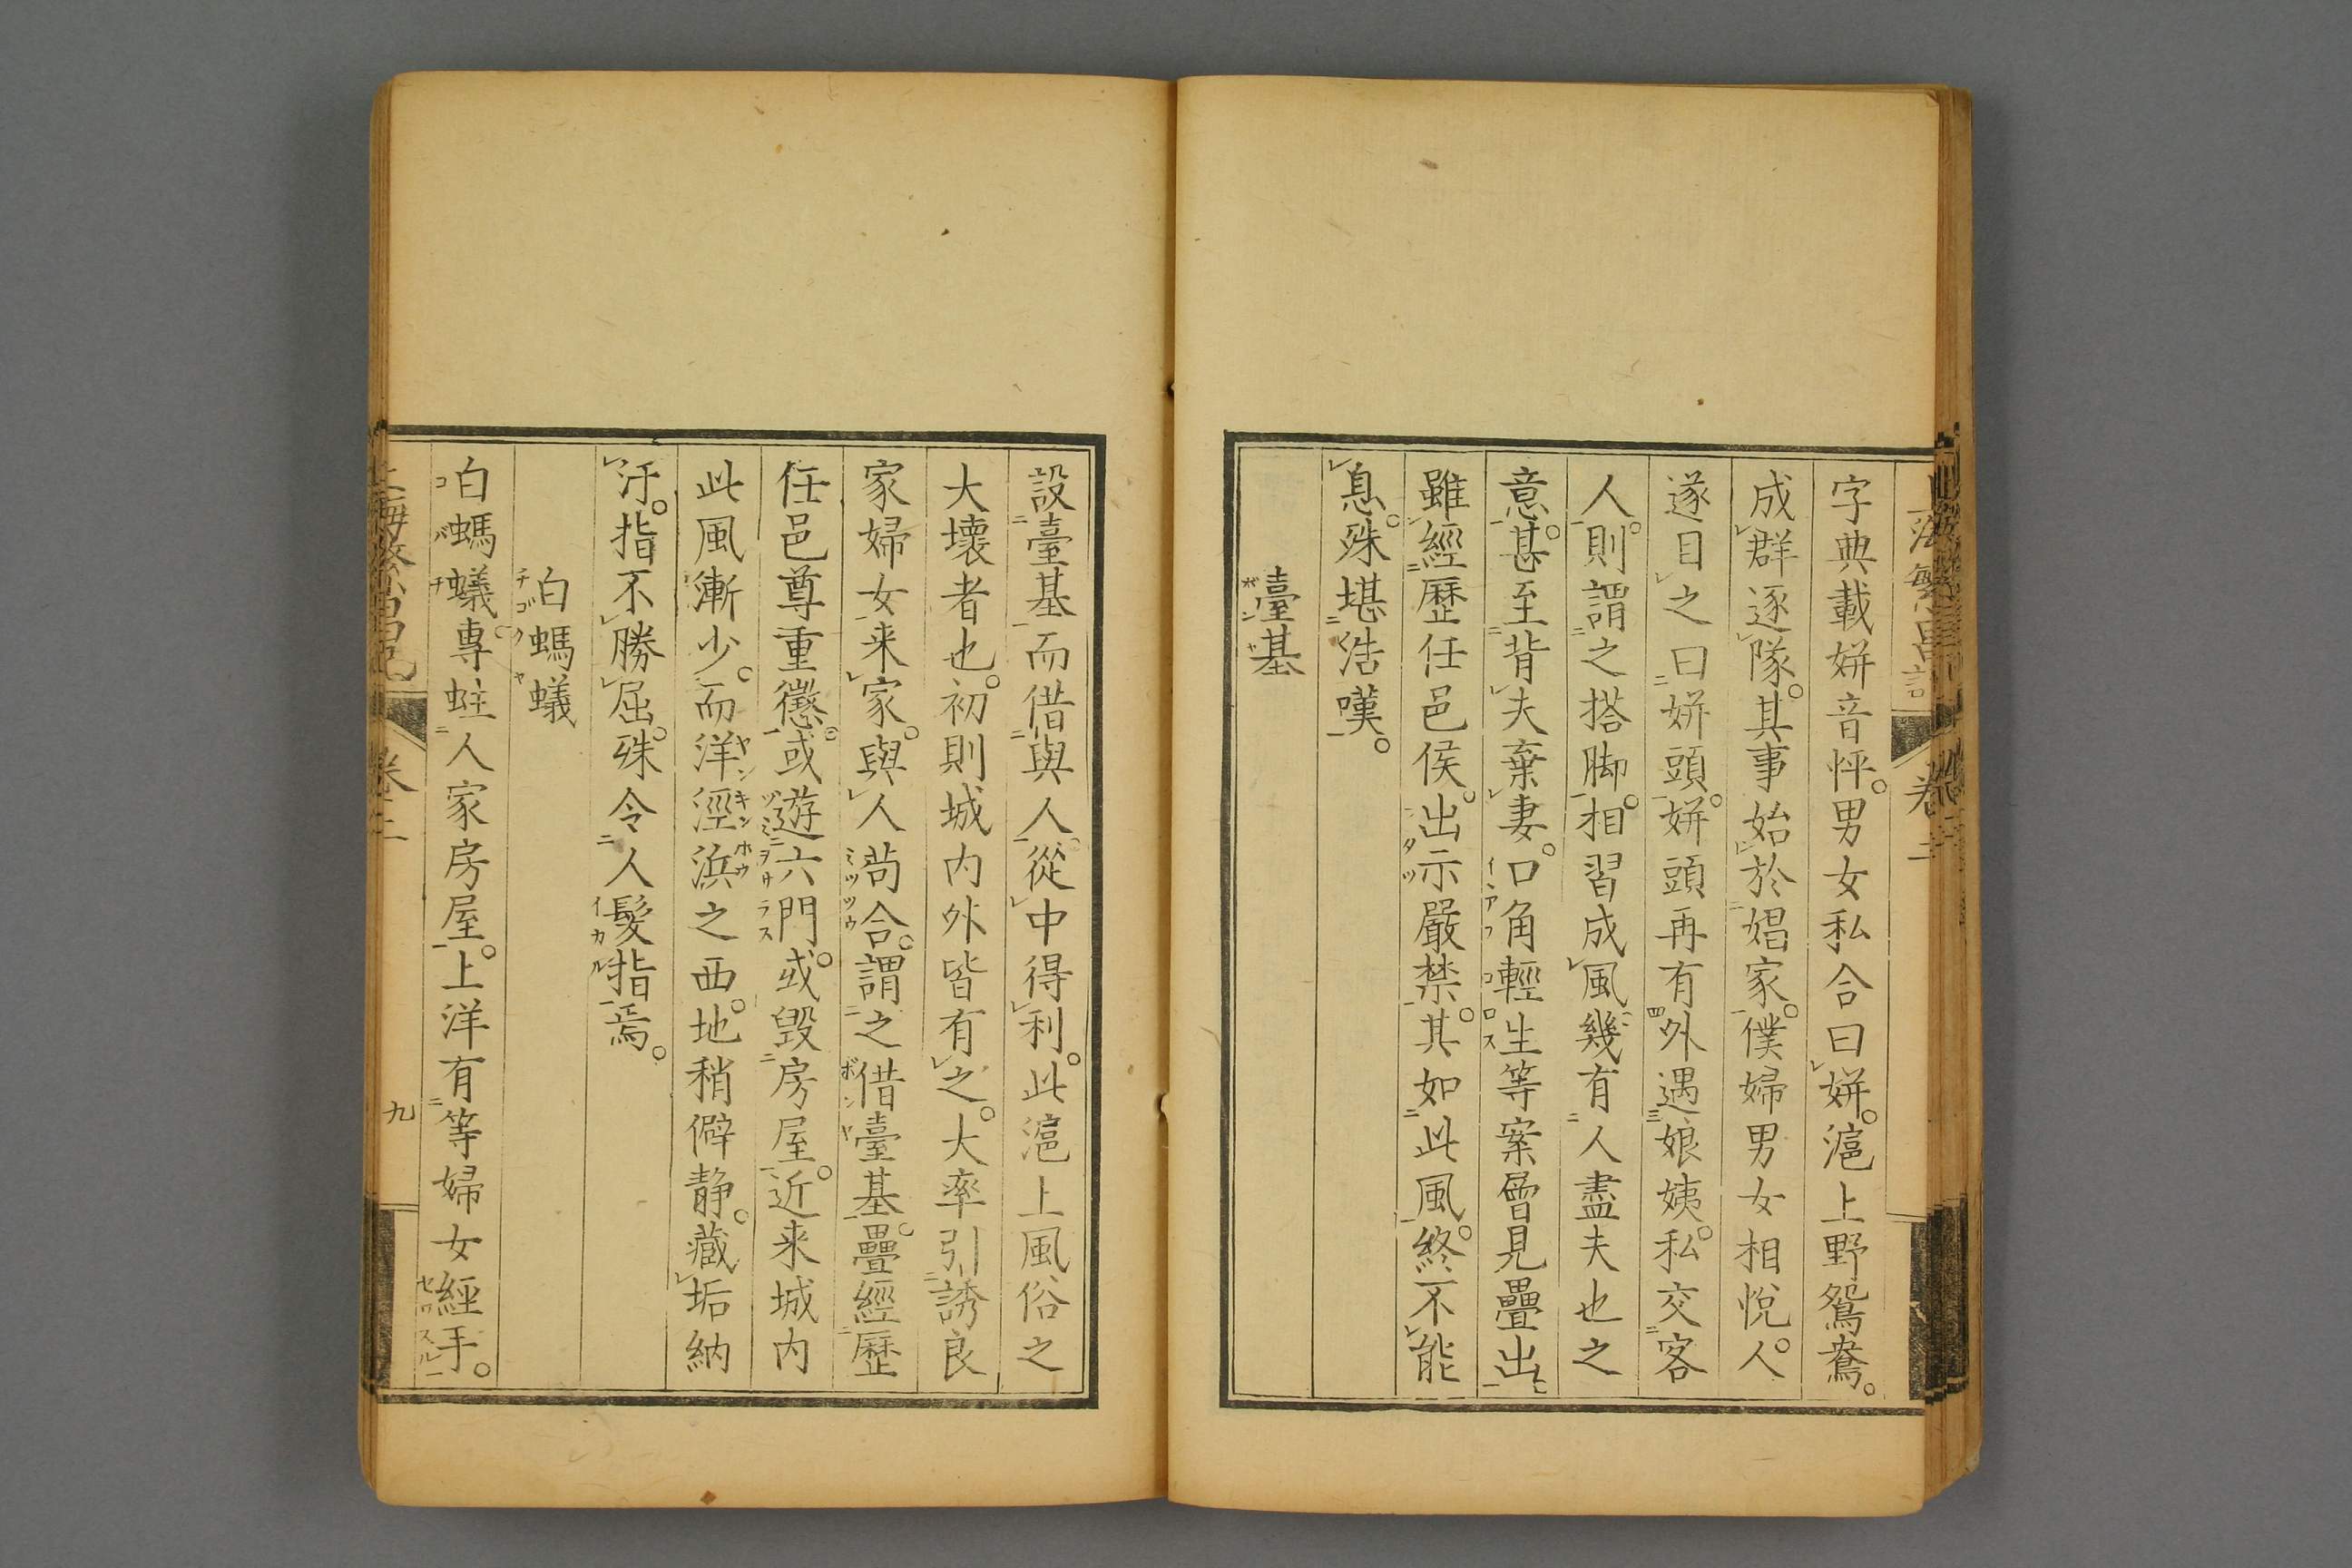 字典載姘音怦。男女私合曰姘。滬上野鴛鴦。
成群逐隊。其事始於娼家。僕婦男女相悅。人
遂目之曰姘頭。姘頭再有外遇娘姨。私交客
人。則謂之搭脚。相習成風。幾有人盡夫也之
意。甚至背夫棄妻。口角輕生等案曾見疊出
雖經歷任邑侯。出示嚴禁。其如此風。終不能
息。殊堪浩嘆。
臺基
設臺基而借與人。從中得利。此滬上風俗之
大壞者也。初則城内外皆有之。大率引誘良
家婦女来家。與人苟合。謂之借臺基。疊經歷
任邑尊重懲。或遊六門。或毀房屋。近来城内
此風漸少。而洋涇浜之西。地稍僻静。藏垢納
汙。指不勝屈。殊令人髮指焉。
白螞蟻
白螞蟻。專蛀人家房屋。上洋有等婦女經手。
卷二
九